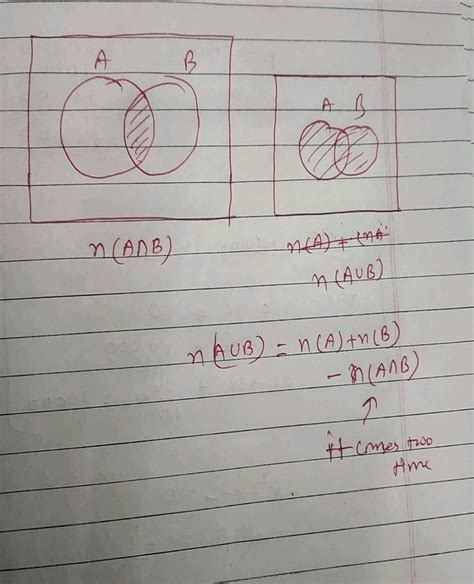 A B
A B
n(A∩B)
n(A) + (nA
n(A∪B)
n(A∪B) = n(A)+n(B)
- n(A∩B)
↑
It comes two
time